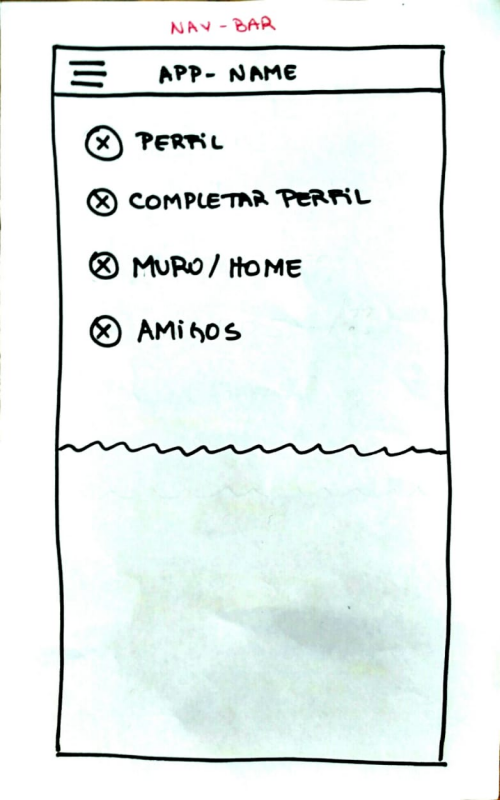 NAV-BAR
APP-NAME
PERFIL
COMPLETAR PERFIL
MURO/HOME
AMIGOS